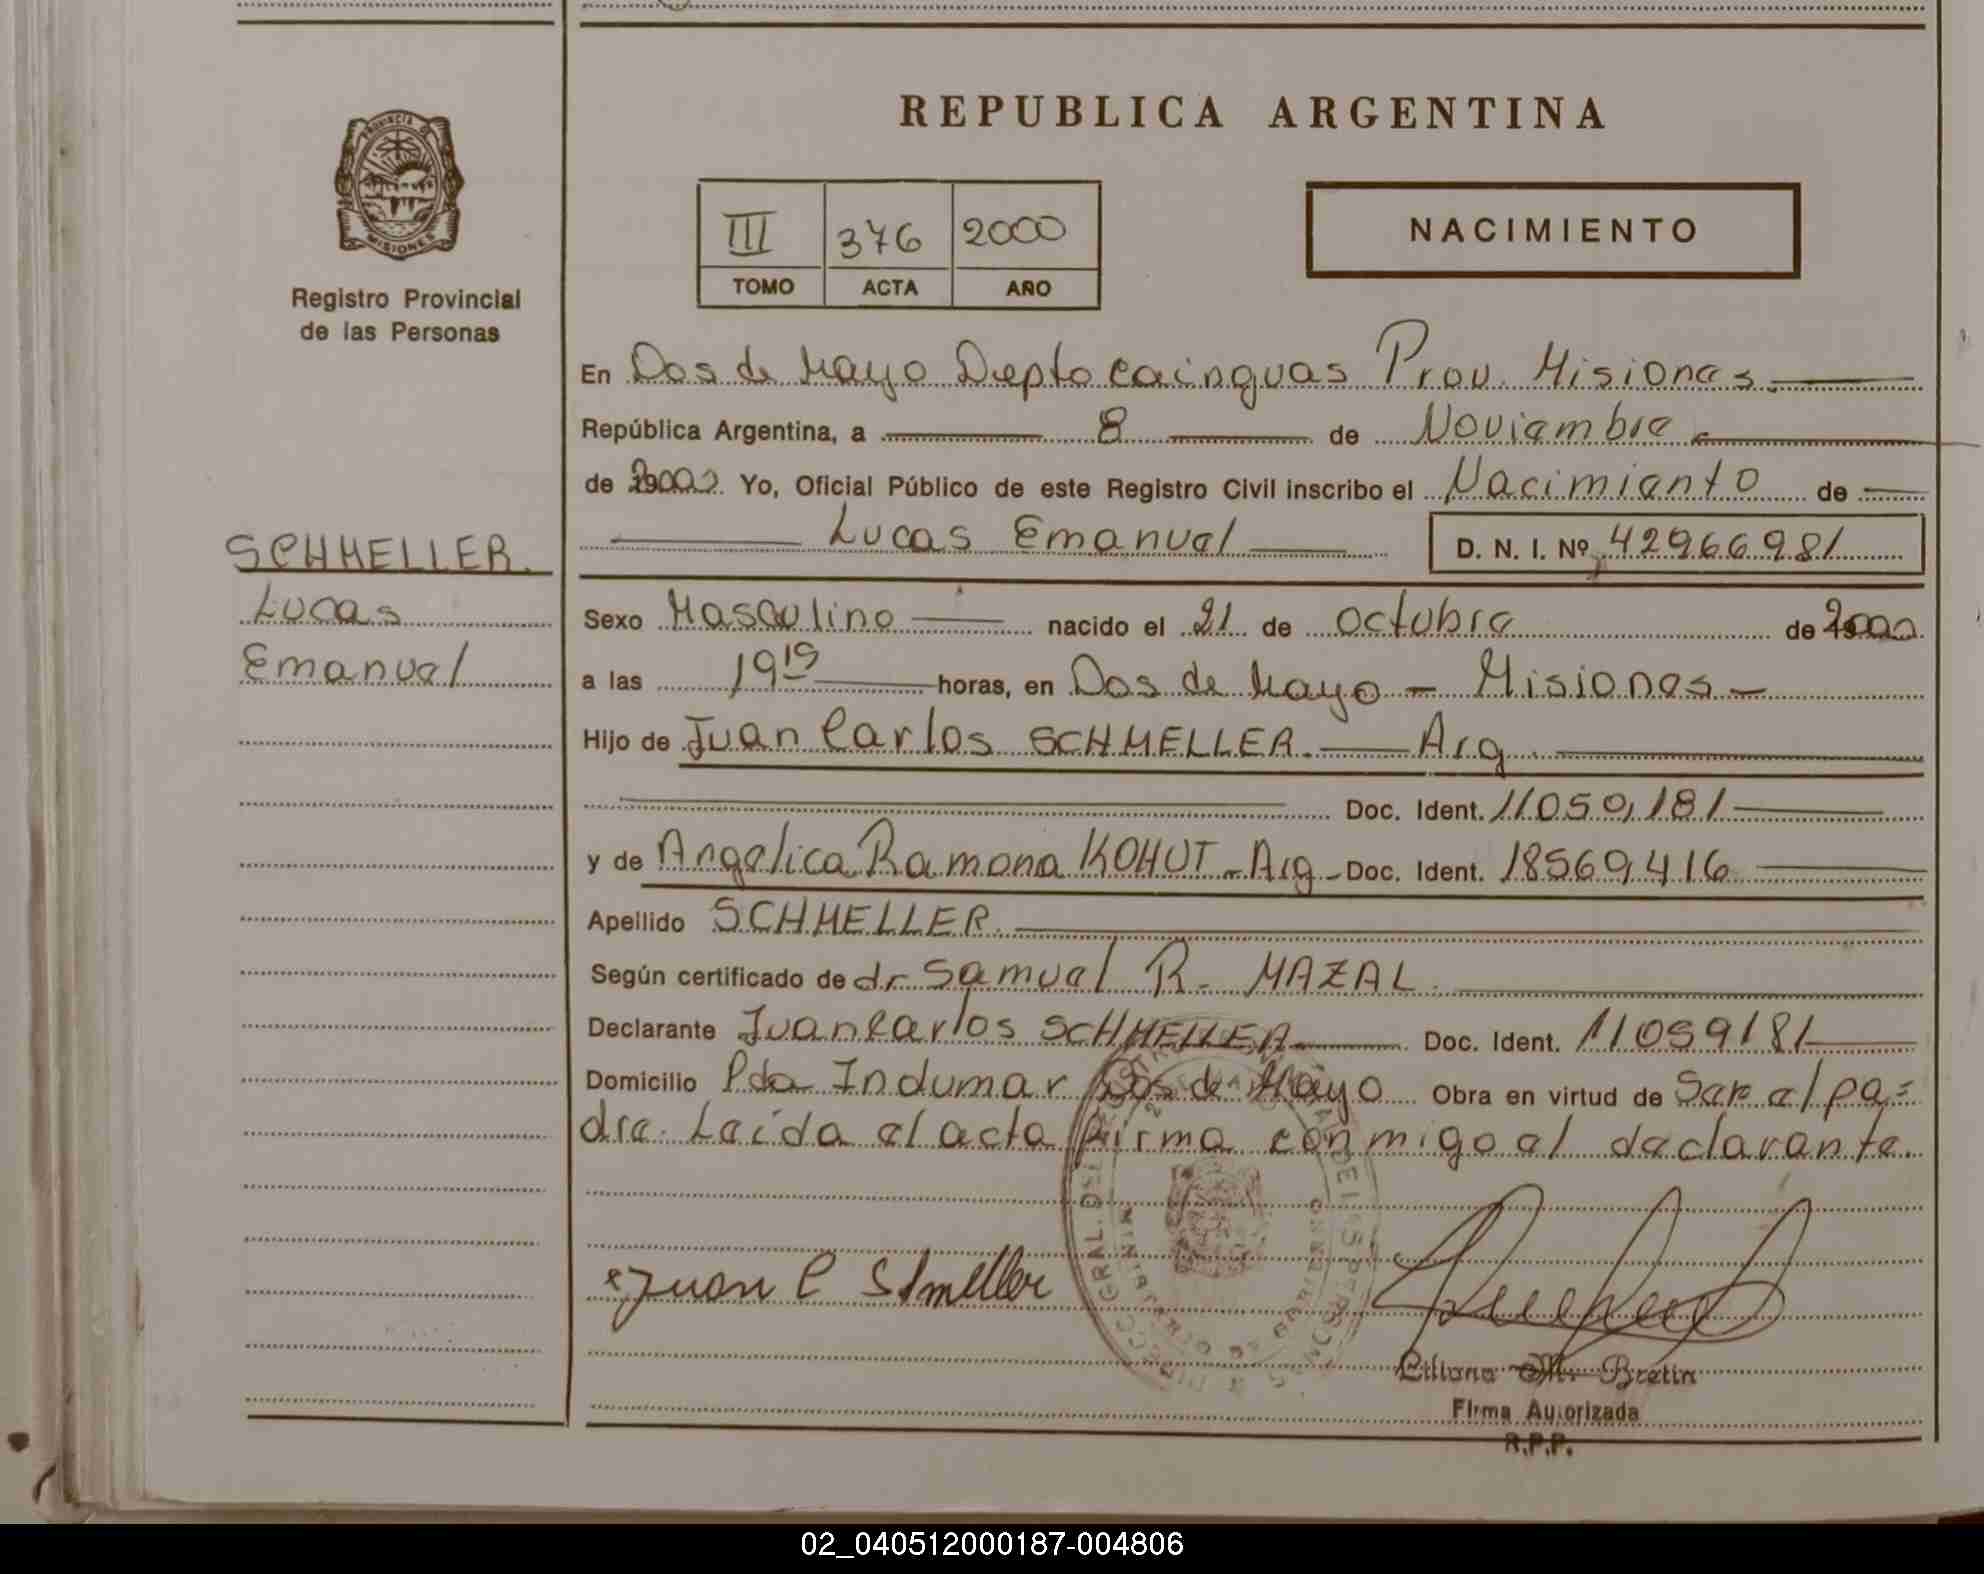 REPUBLICA ARGENTINA
PROVINCIA DE
MISIONES
Registro Provincial
de las Personas
III 376 2000
TOMO ACTA AÑO
NACIMIENTO
En Dos de Mayo Depto Cainguas Prov. Misiones.
República Argentina, a 8 de Noviembre
de 2000 Yo, Oficial Público de este Registro Civil inscribo el Nacimiento de
Lucas Emanuel D. N. I. Nº 42966981
SCHMELLER.
Lucas
Emanuel
Sexo Masculino nacido el 21 de octubre de 2000
a las 19 15 horas, en Dos de Mayo - Misiones -
Hijo de Juan Carlos SCHMELLER. Arg.
Doc. Ident. 11059181
y de Angelica Ramona KOHUT - Arg - Doc. Ident. 18569416
Apellido SCHMELLER.
Según certificado de dr Samuel R. MAZAL.
Declarante Juan Carlos SCHMELLER Doc. Ident. 11059181
Domicilio Pda Indumar Dos de Mayo Obra en virtud de Ser el pa=
dre. Leída el acta firma conmigo el declarante.
Juan C Shmeller
Liliana M. Bretin
Firma Autorizada
R.P.P.
02_040512000187-004806